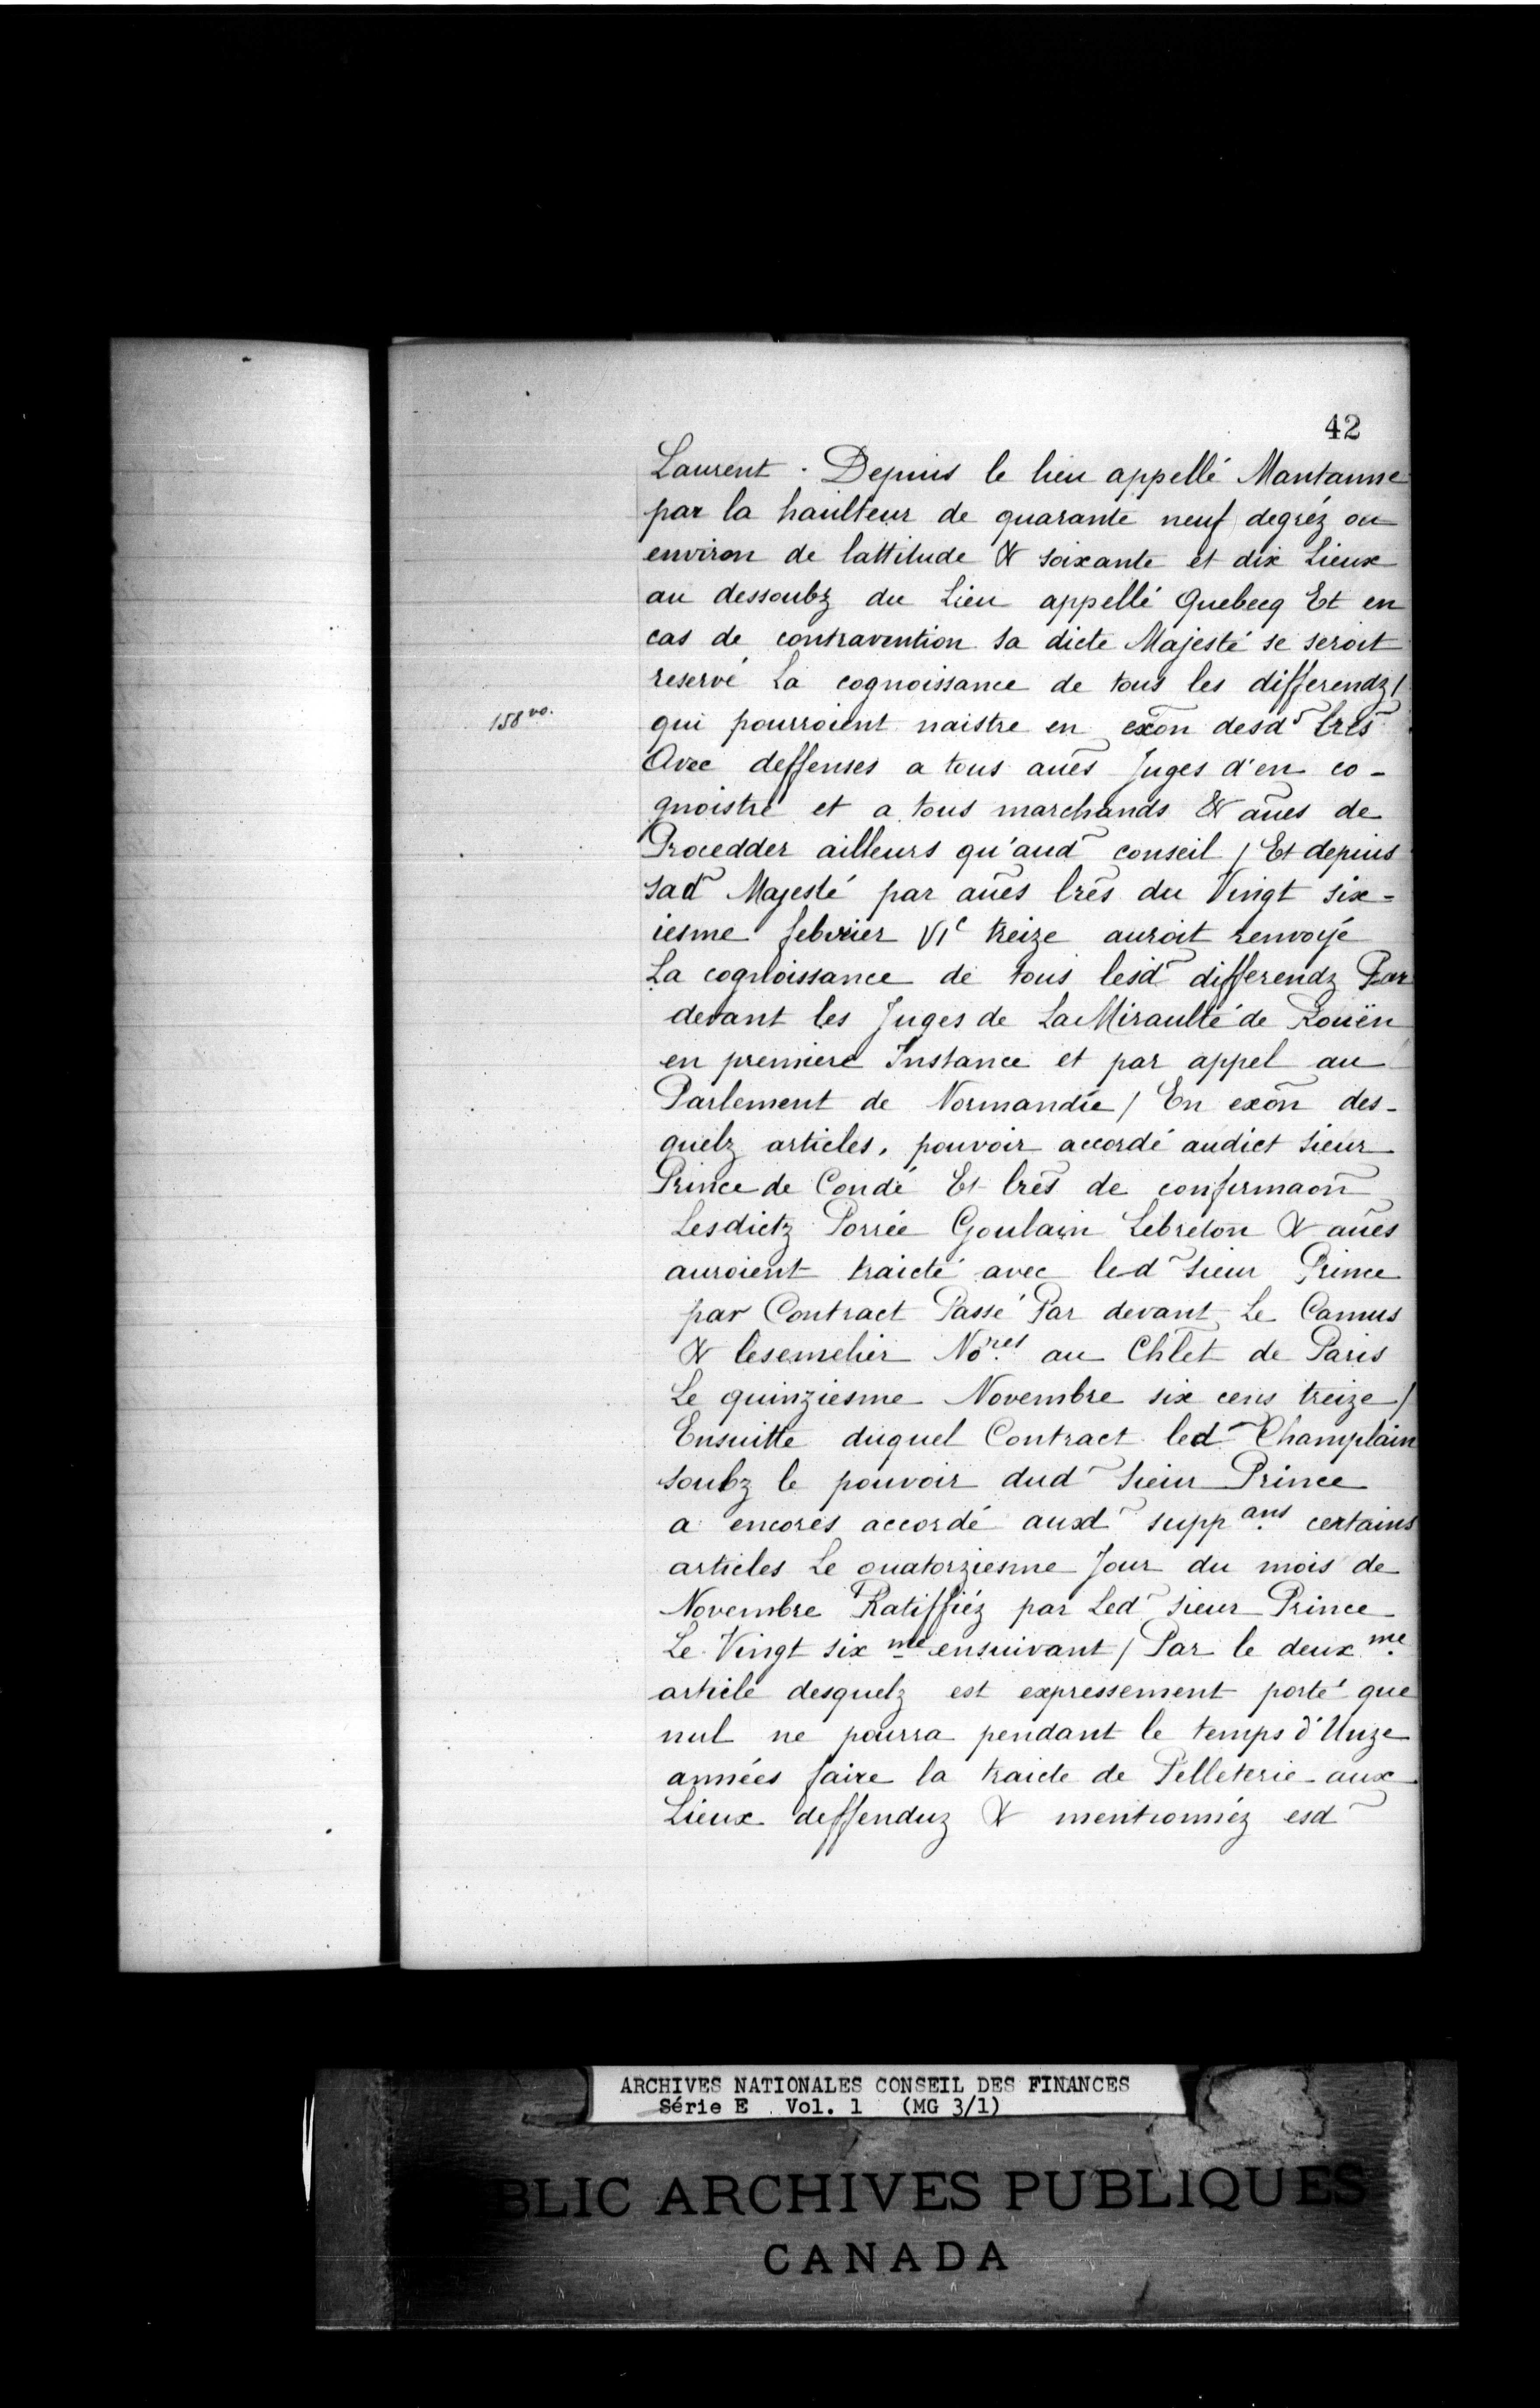 42
Laurent. Depuis le lieu appellé Mantanne
par la haulteur de quarante neuf degréz ou
environ de lattitude & soixante et dix Lieux
au dessoubz du Lieu appellé Quebecq Et en
cas de contravention sa dicte Majesté se seroit
reservé La cognoissance de tous les differendz/
158 vo.
qui pourroient naistre en exõn desd~ lrẽs
Avec deffenses a tous auẽs Juges d'en co-
gnoistre et a tous marchands & auẽs de
Procedder ailleurs qu'aud~ conseil / Et depuis
sad~ Majesté par auẽs lrẽs du Vingt six-
iesme febvrier VIc treize auroit renvoyé
La cognoissance de tous lesd~ differendz Par
devant les Juges de La Miraulté de Rouën
en premiere Instance et par appel au
Parlement de Normandie / En exõn des-
quelz articles, pouvoir accordé audict sieur
Prince de Condé Et lrẽs de confirmaõn
Lesdictz Porrée Goulain Lebreton & auẽs
auroient traicté avec led~ sieur Prince
par Contract Passé Par devant Le Camus
& lesemelier No.res au Chlẽt de Paris
Le quinziesme Novembre six cens treize /
Ensuitte duquel Contract led~ Champlain
soubz le pouvoir dud~ sieur Prince
a encores accordé auxd~ supp.ans certains
articles Le quatorziesme Jour du mois de
Novembre Ratiffiéz par Led~ sieur Prince
Le Vingt six me ensuivant / Par le deux.me
article desquelz est expressement porté que
nul ne pourra pendant le temps d'Unze
années faire la traicte de Pelleterie aux
Lieux deffenduz & mentionnéz esd~
ARCHIVES NATIONALES CONSEIL DES FINANCES
Série E Vol. 1 (MG 3/1)
BLIC ARCHIVES PUBLIQUES
CANADA